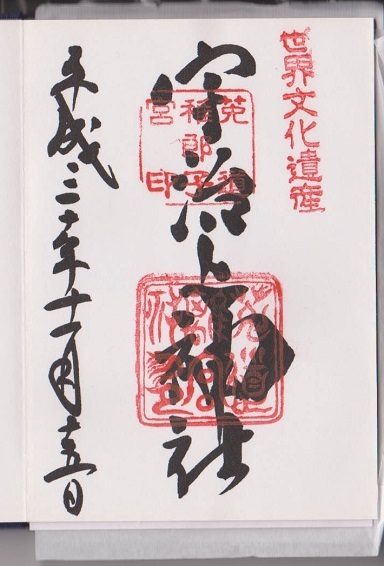 世界文化遺産
宇治上神社
菟道
稚郎子
宮印
平成三十年十一月十五日